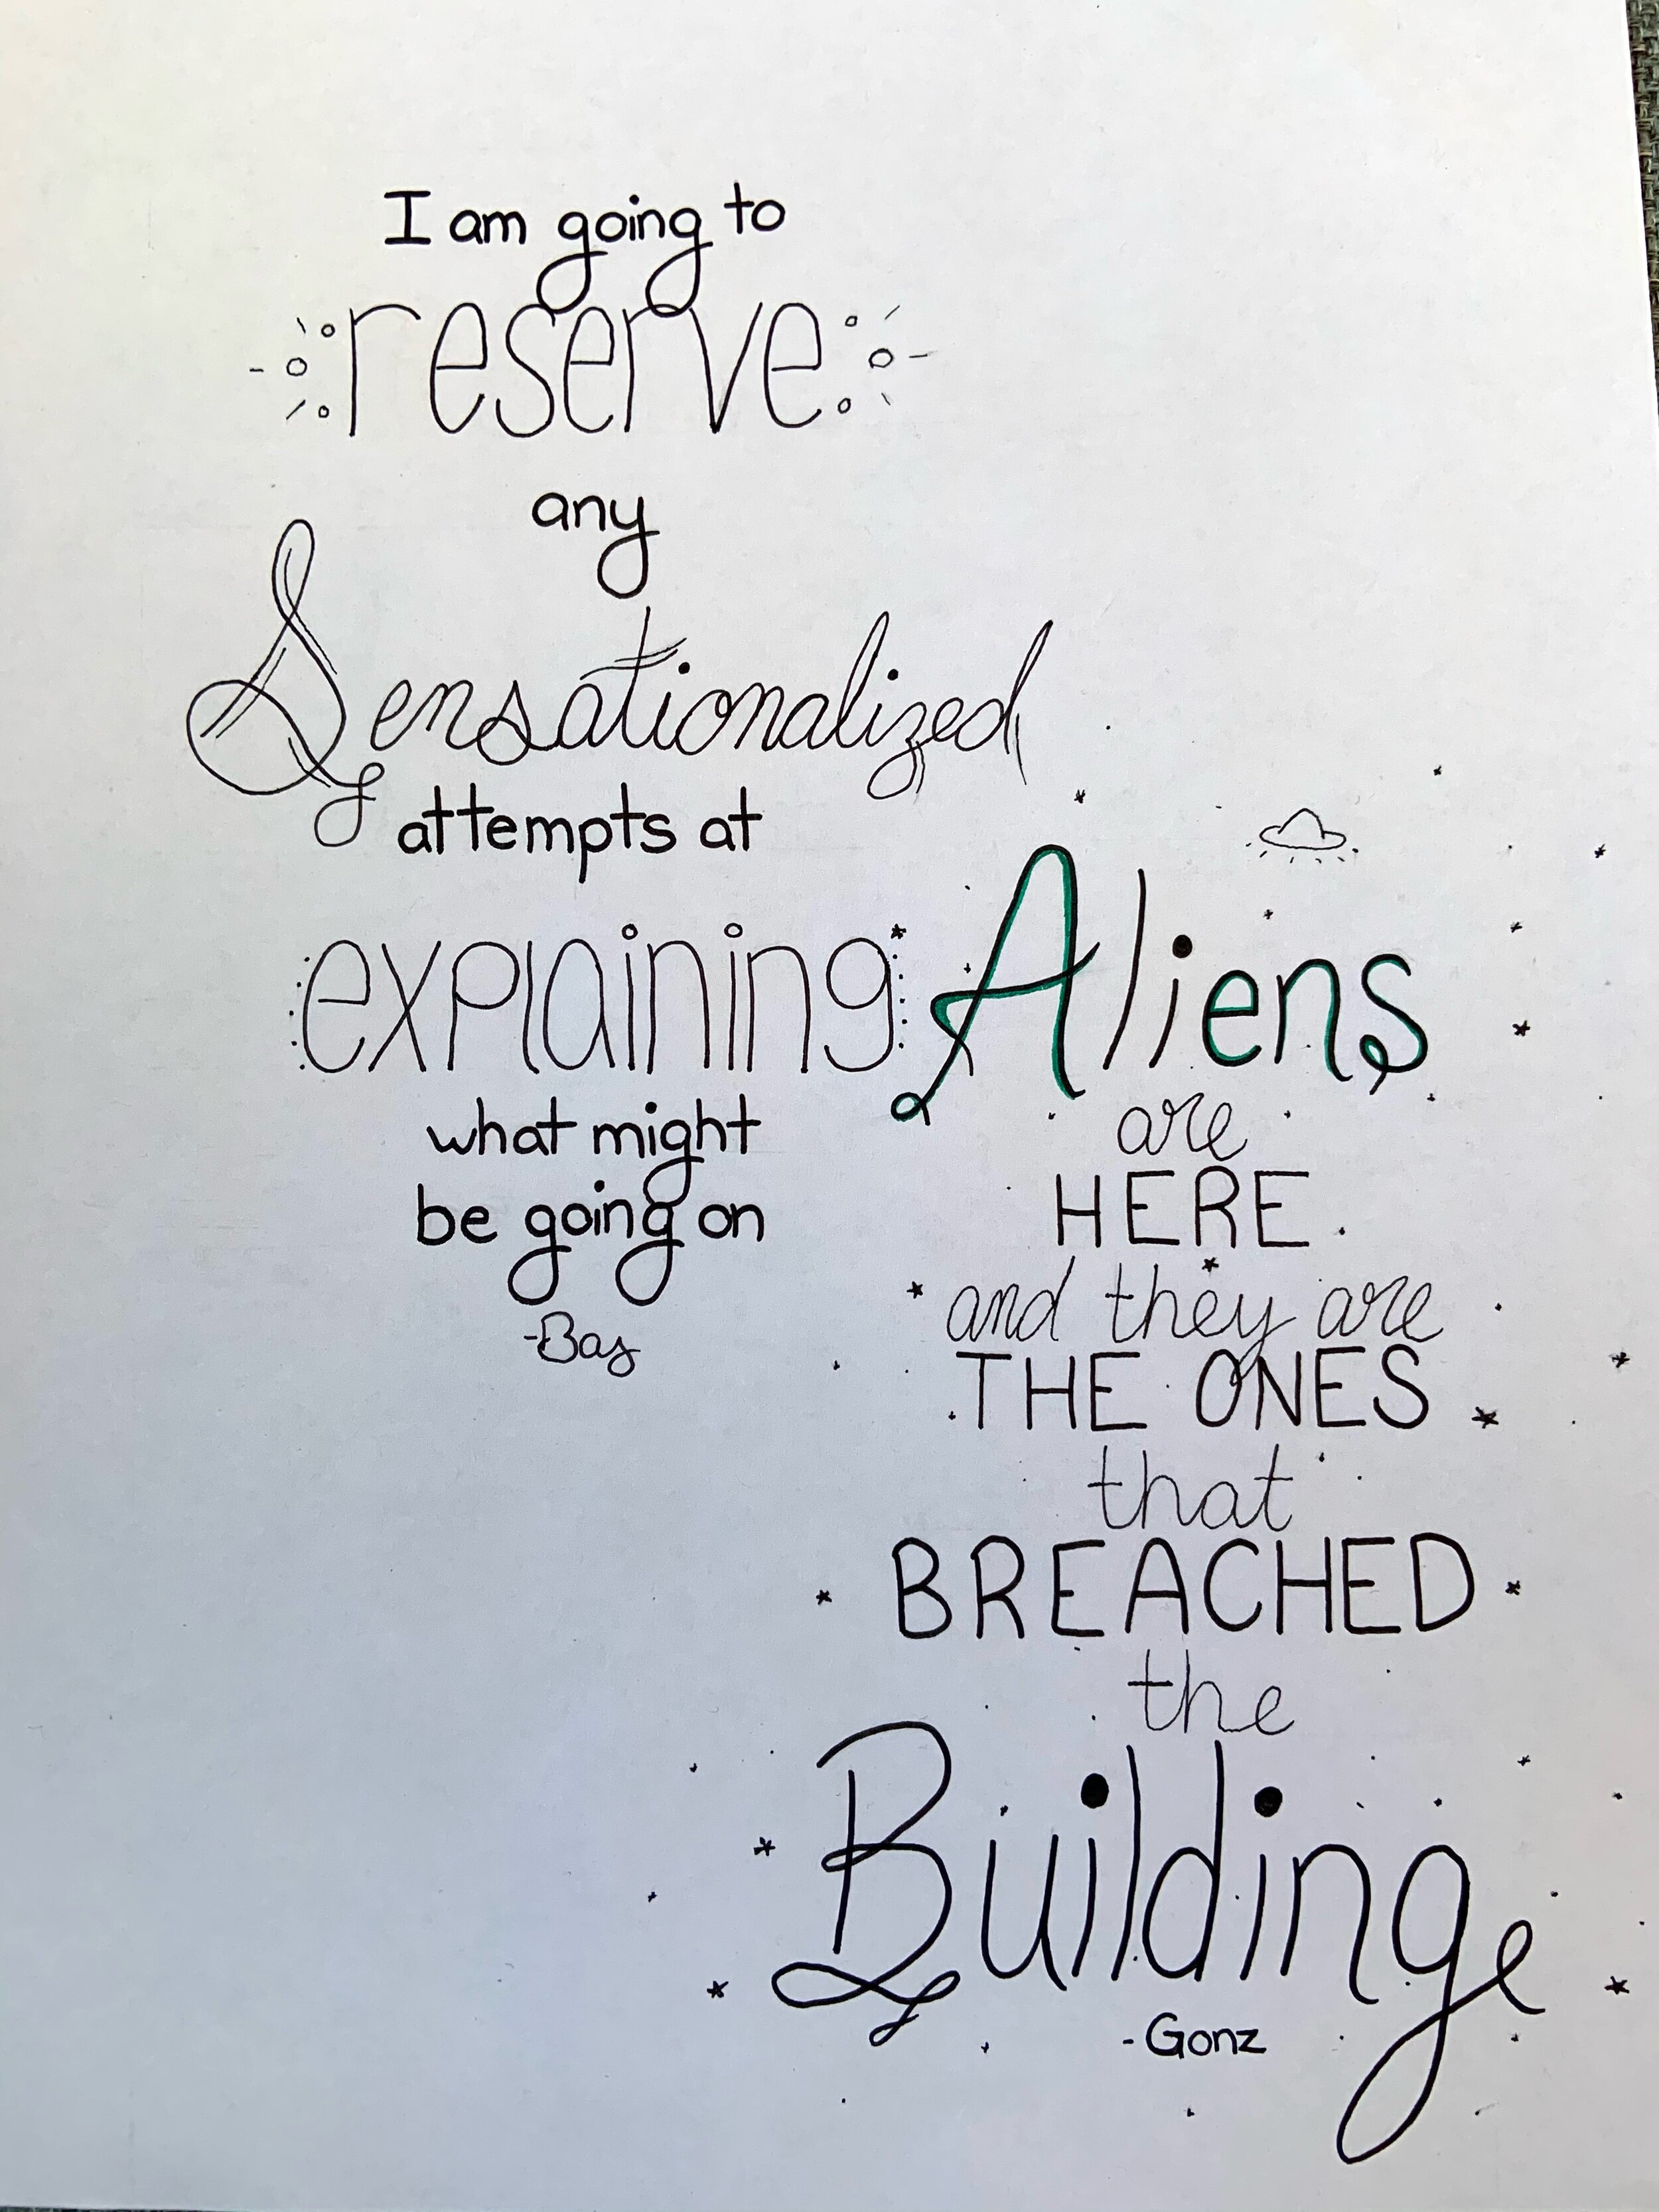 I am going to
reserve
any
Sensationalized
attempts at
explaining
what might
be going on
-Bas
Aliens
are
HERE
and they are
THE ONES
that
BREACHED
the
Building
-Gonz